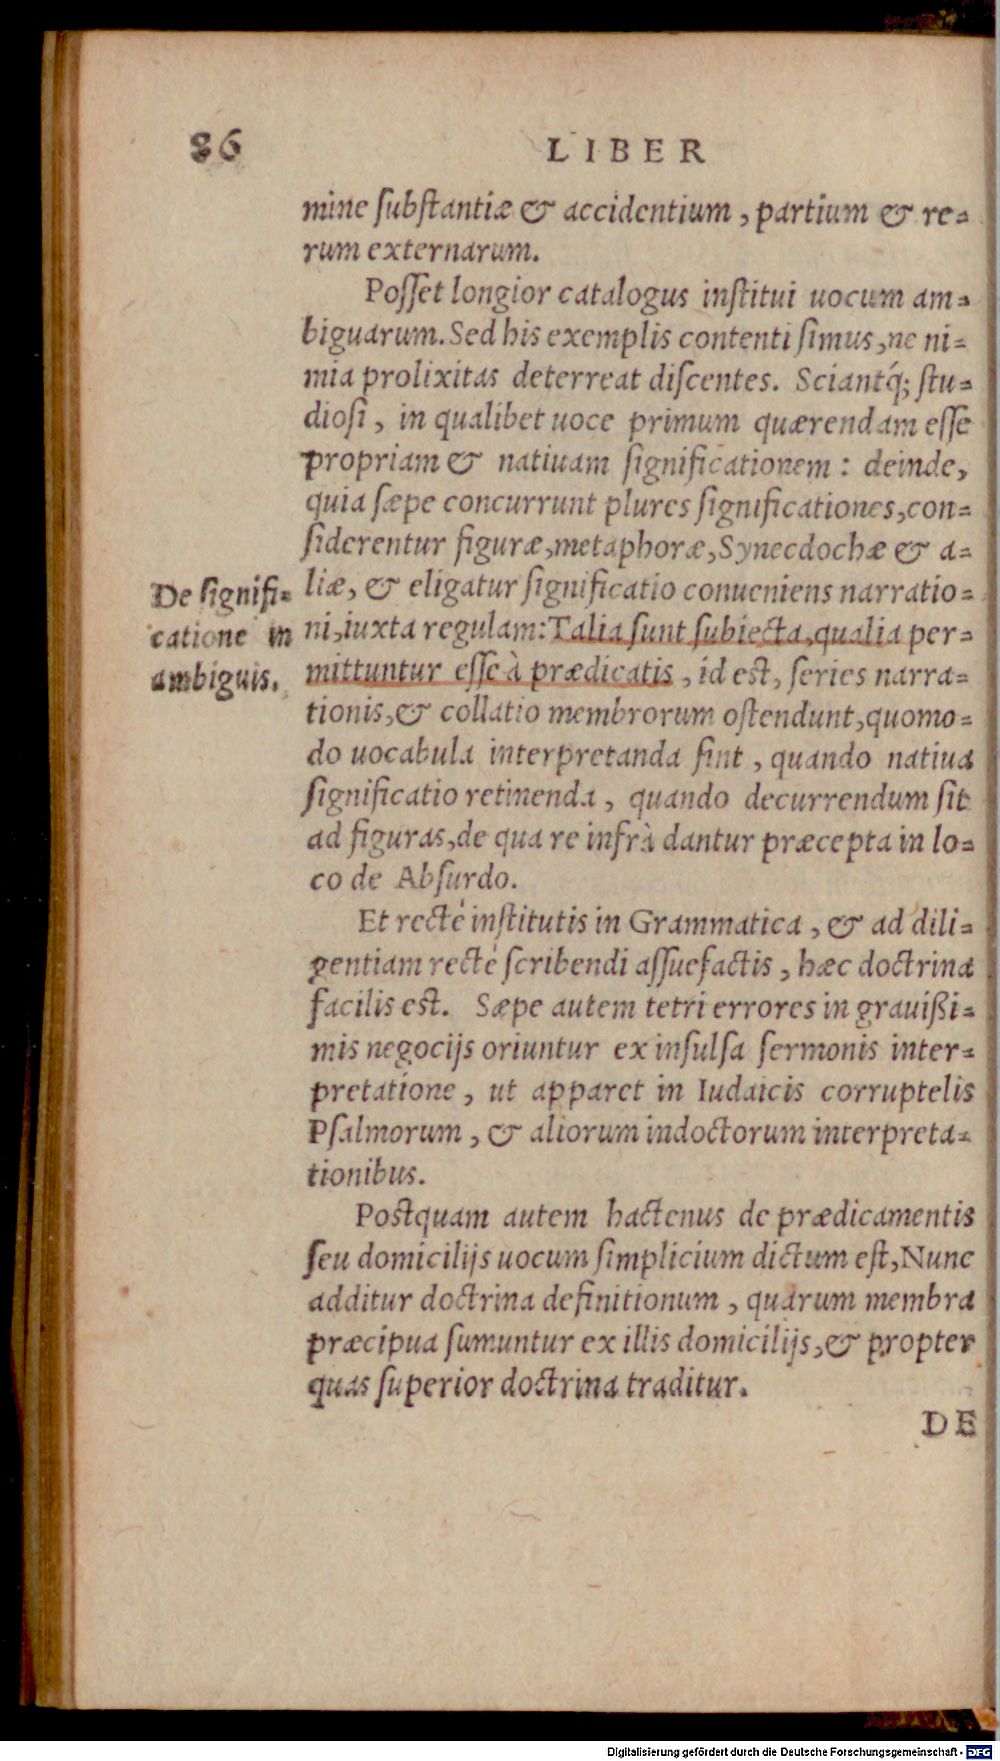 86 LIBER
mine ſubſtantiæ & accidentium, partium & re-
rum externarum.
Poſſet longior catalogus inſtitui uocum am-
biguarum. Sed his exemplis contenti ſimus, ne ni-
mia prolixitas deterreat diſcentes. Sciantq́; ſtu-
dioſi, in qualibet uoce primum quærendam eſſe
propriam & natiuam ſignificationem: deinde,
quia ſæpe concurrunt plures ſignificationes, con-
ſiderentur figuræ, metaphoræ, Synecdochæ & a-
liæ, & eligatur ſignificatio conueniens narratio-
ni, iuxta regulam: Talia ſunt ſubiecta, qualia per-
mittuntur eſſe à prædicatis, id eſt, ſeries narra-
tionis, & collatio membrorum oſtendunt, quomo-
do uocabula interpretanda ſint, quando natiua
ſignificatio retinenda, quando decurrendum ſit
ad figuras, de qua re infrà dantur præcepta in lo-
co de Abſurdo.
De ſignifi-
catione in
ambiguis.
Et rectè inſtitutis in Grammatica, & ad dili-
gentiam rectè ſcribendi aſſuefactis, hæc doctrina
facilis eſt. Sæpe autem tetri errores in grauißi-
mis negocijs oriuntur ex inſulſa ſermonis inter-
pretatione, ut apparet in Iudaicis corruptelis
Pſalmorum, & aliorum indoctorum interpreta-
tionibus.
Poſtquam autem hactenus de prædicamentis
ſeu domicilijs uocum ſimplicium dictum eſt, Nunc
additur doctrina definitionum, quarum membra
præcipua ſumuntur ex illis domicilijs, & propter
quas ſuperior doctrina traditur.
DE
Digitalisierung gefördert durch die Deutsche Forschungsgemeinschaft - DFG